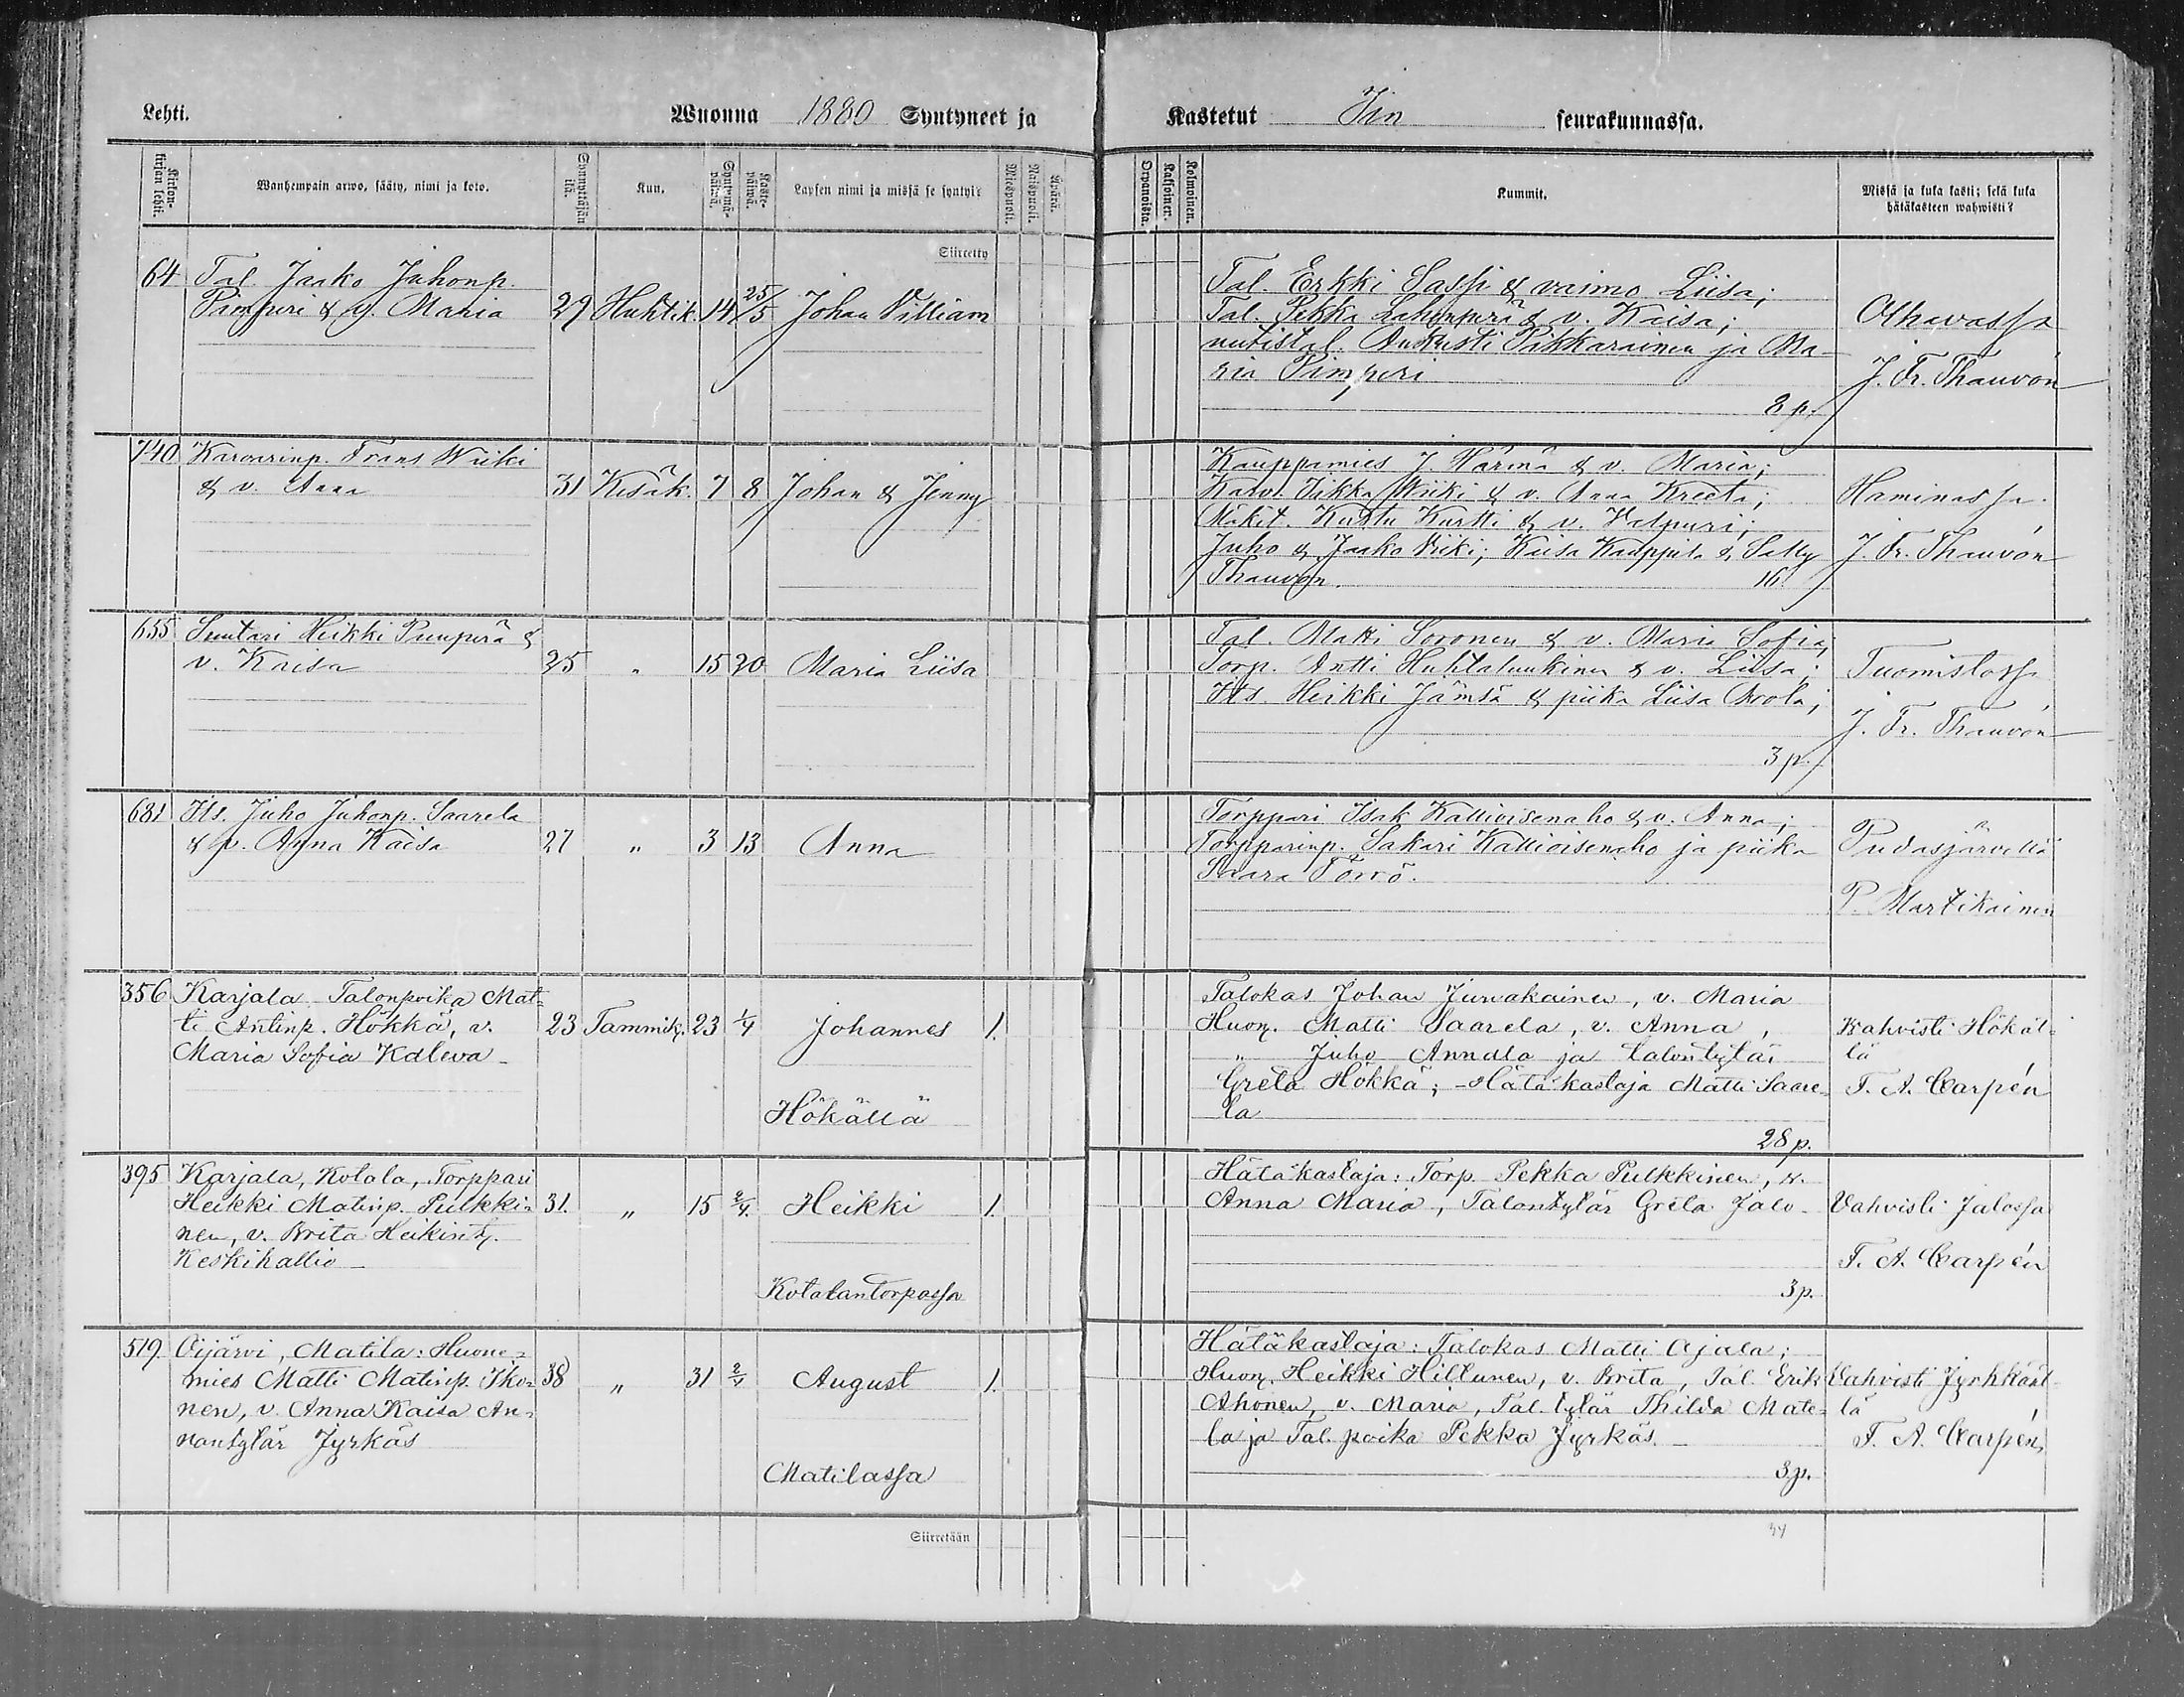 Lehti.
Wuonna 1880 Syntyneet ja
Kastetut Iin seurakunnassa.
Kirkon-kirjan lehti.
Wanhempain arwo, sääty, nimi ja koto.
Synnyttäjän ikä.
Kuu.
Syntymä-päiwä.
Kaste-päiwä.
Lapsen nimi ja missä se syntyi?
Miespuoli.
Waispuoli.
Awioton.
Kaksoinen.
Kolmoinen.
Kummit.
Missä ja kuka kasti; sekä kuka
hätäkasteen wahwisti?
Siirretty
64 Tal. Jaako Juhonp.
Pimperi & v. Maria 29 Huhtik. 14 25/5 Johan Villiam
Tal. Erkki Sassi & vaimo Liisa;
Tal. Pekka Lahenperä & v. Kaisa;
Aukusti Pikkarainen ja Ma-
ria Pimperi
8 p.
Olhavassa
J. Fr. Thauvón
740 Karvarinp. Frans Wiiki
& v. Anna 31 Kesäk. 7 8 Johan & Jenny
Kauppamies J. Härmä & v. Maria;
Karv. Iikka Wiiki & v. Anna Kreeta;
Mäkit. Kustu Kurtti & v. Valpuri;
Juho & Jaako Wiiki; Kaisa Kauppila & Sally
Thauvón. 16
Haminassa
J. Fr. Thauvón
655 Suutari Heikki Puuperä &
v. Kaisa 25 " 15 20 Maria Liisa
Tal. Matti Soronen & v. Maria Sofia;
Torp. Antti Huhtalunkinen & v. Liisa;
Its. Heikki Jämsä & piika Liisa Arola;
3 p.
Tuomistossa
J. Fr. Thauvón
681 Its. Juho Juhonp. Saarela
& v. Anna Kaisa 27 " 3 13 Anna
Torppari Isak Kallioisenaho & v. Anna;
Torpparinp. Sakari Kallioisenaho ja piika
Saara Törrö.
Pudasjärvellä
P. Martikainen
356 Karjala Talonpoika Mat-
ti Antinp. Hökkä, v. 23 Tammik. 23 1/4 Johannes 1.
Maria Sofia Kaleva
Hökällä
Talokas Johan Jurvakainen, v. Maria
Huon. Matti Saarela, v. Anna,
" Juho Annala ja talontytär
Greta Hökkä; Hätäkastaja Matti Saare-
la
28 p.
Vahvisti Hökäl-
lä
F. A. Carpén
395 Karjala, Kotala, Torppari
Heikki Matinp. Pulkki- 31. " 15 2/4. Heikki 1.
nen, v. Brita Heikint.
Keskikallio
Kotalantorpassa
Hätäkastaja: Torp. Pekka Pulkkinen, v.
Anna Maria, Talontytär Greta Jalo
3 p.
Vahvisti Jalossa
F. A. Carpén
519 Oijärvi, Matila: Huone-
mies Matti Matinp. Iko- 38 " 31 2/4 August 1.
nen, v. Anna Kaisa An-
nantytär Jyrkäs
Matilassa
Hätäkastaja: Talokas Matti Ajala;
Huon. Heikki Hiltunen, v. Brita, Tal. Erik
Ahonen, v. Maria, Tal. tytär Thilda Mate-
la ja Tal. poika Pekka Jyrkäs.
3 p.
lä
F. A. Carpén
Siirretään
34